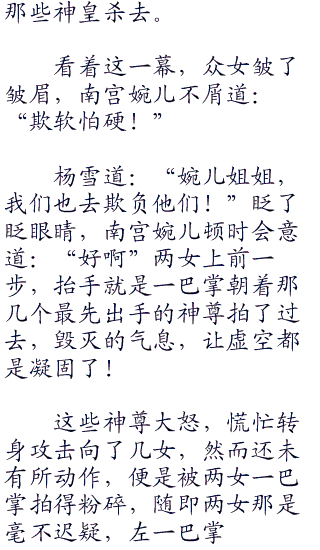 那些神皇杀去。
看着这一幕，众女皱了
皱眉，南宫婉儿不屑道：
“欺软怕硬！”
杨雪道：“婉儿姐姐，
我们也去欺负他们！”眨了
眨眼睛，南宫婉儿顿时会意
道：“好啊”两女上前一
步，抬手就是一巴掌朝着那
几个最先出手的神尊拍了过
去，毁灭的气息，让虚空都
是凝固了！
这些神尊大怒，慌忙转
身攻击向了几女，然而还未
有所动作，便是被两女一巴
掌拍得粉碎，随即两女那是
毫不迟疑，左一巴掌